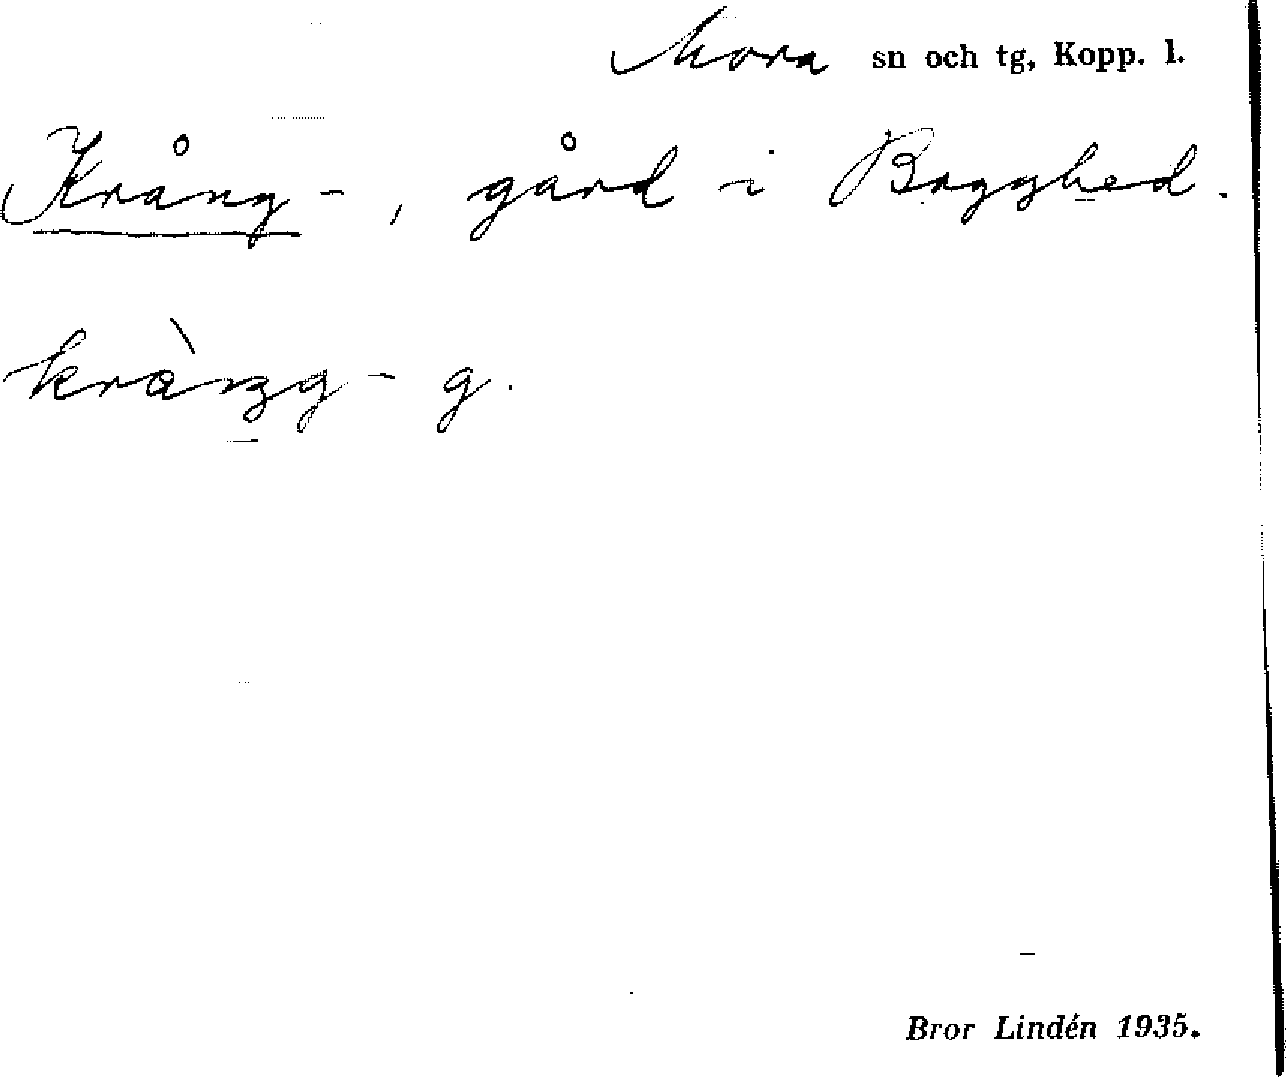 Mora sn och tg, Kopp. l.
Krång-, gård i Bogghed.
kràŋg- g.
Bror Lindén 1935.